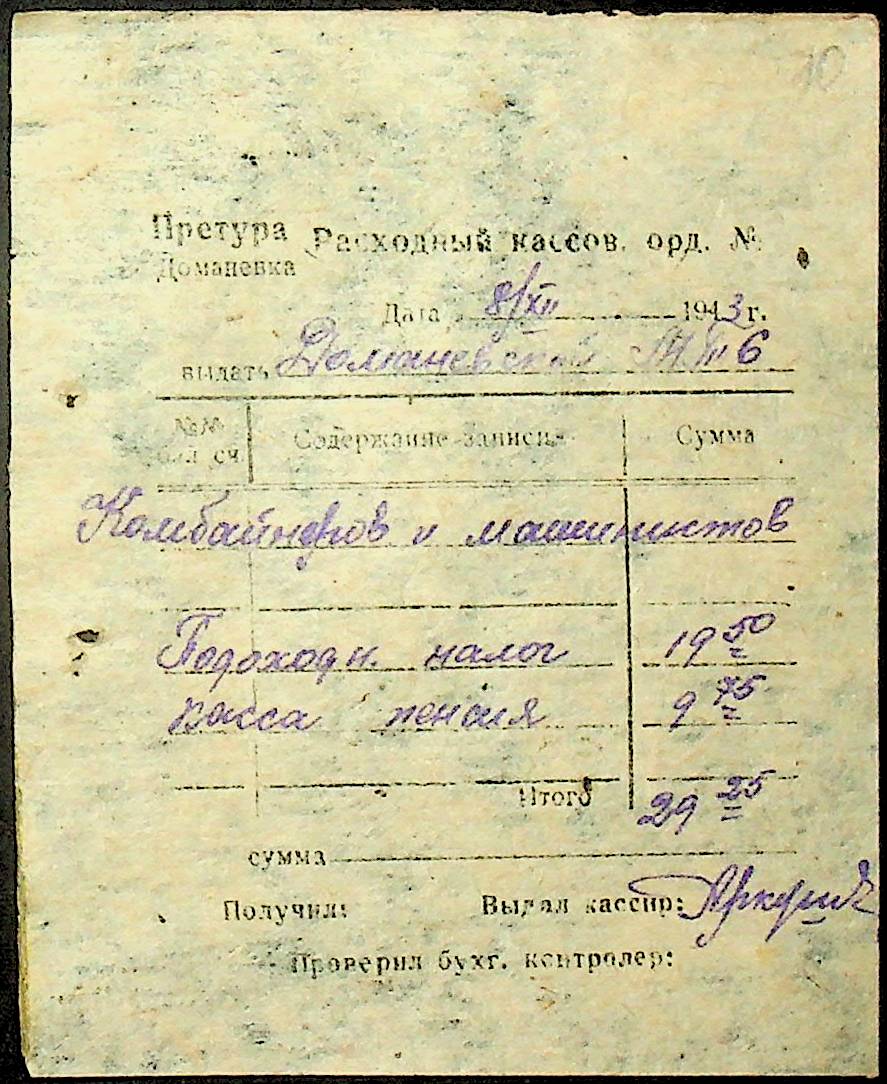 10
Претура Расходный кассов. орд. №
Доманевка
Дата 8/XII 1943 г.
выдать Доманевской
№№ Содержание записи Сумма
бал сч.
Комбайнеров и машинистов
Подоходн. налог 19 50
касса пенсия 9 75
Итого 29 25
сумма
Получил: Выдал кассир:
Проверил бухг. контролер: